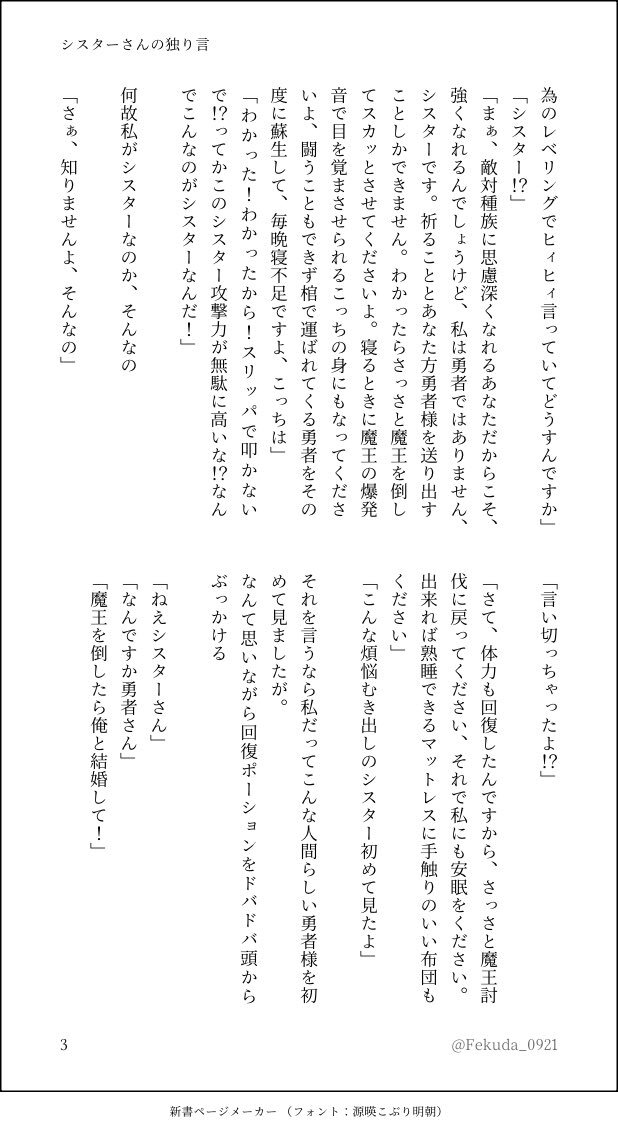 シスターさんの独り言
為のレベリングでヒィヒィ言っていてどうすんですか」
「シスター!?」
「まぁ、敵対種族に思慮深くなれるあなただからこそ、
強くなれるんでしょうけど、私は勇者ではありません、
シスターです。祈ることとあなた方勇者様を送り出す
ことしかできません。わかったらさっさと魔王を倒し
てスカッとさせてくださいよ。寝るときに魔王の爆発
音で目を覚まさせられるこっちの身にもなってくださ
いよ、闘うこともできず棺で運ばれてくる勇者をその
度に蘇生して、毎晩寝不足ですよ、こっちは」
「わかった！わかったから！スリッパで叩かない
で!?ってかこのシスター攻撃力が無駄に高いな!?なん
でこんなのがシスターなんだ！」
何故私がシスターなのか、そんなの
「さぁ、知りませんよ、そんなの」
「言い切っちゃったよ!?」
「さて、体力も回復したんですから、さっさと魔王討
伐に戻ってください、それで私にも安眠をください。
出来れば熟睡できるマットレスに手触りのいい布団も
ください」
「こんな煩悩むき出しのシスター初めて見たよ」
それを言うなら私だってこんな人間らしい勇者様を初
めて見ましたが。
なんて思いながら回復ポーションをドバドバ頭から
ぶっかける
「ねえシスターさん」
「なんですか勇者さん」
「魔王を倒したら俺と結婚して！」
3
@Fekuda_0921
新書ページメーカー（フォント：源暎こぶり明朝）